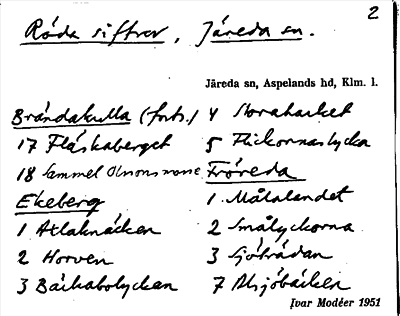 2
Röda siffror, Järeda sn.
Järeda sn, Aspelands hd, Klm. l.
Brändakulla (forts.)
17 Fläskaberget
18 Sammel Olsons mosse
Ekeberg
1 Atlaknäcken
2 Horven
3 Bäckabolycken
4 Storahacket
5 Flickornas lycka
Fröreda
1 Målalandet
2 Smålyckorna
3 Sjöträdan
7 Alsjöbäcken
Ivar Modéer 1951